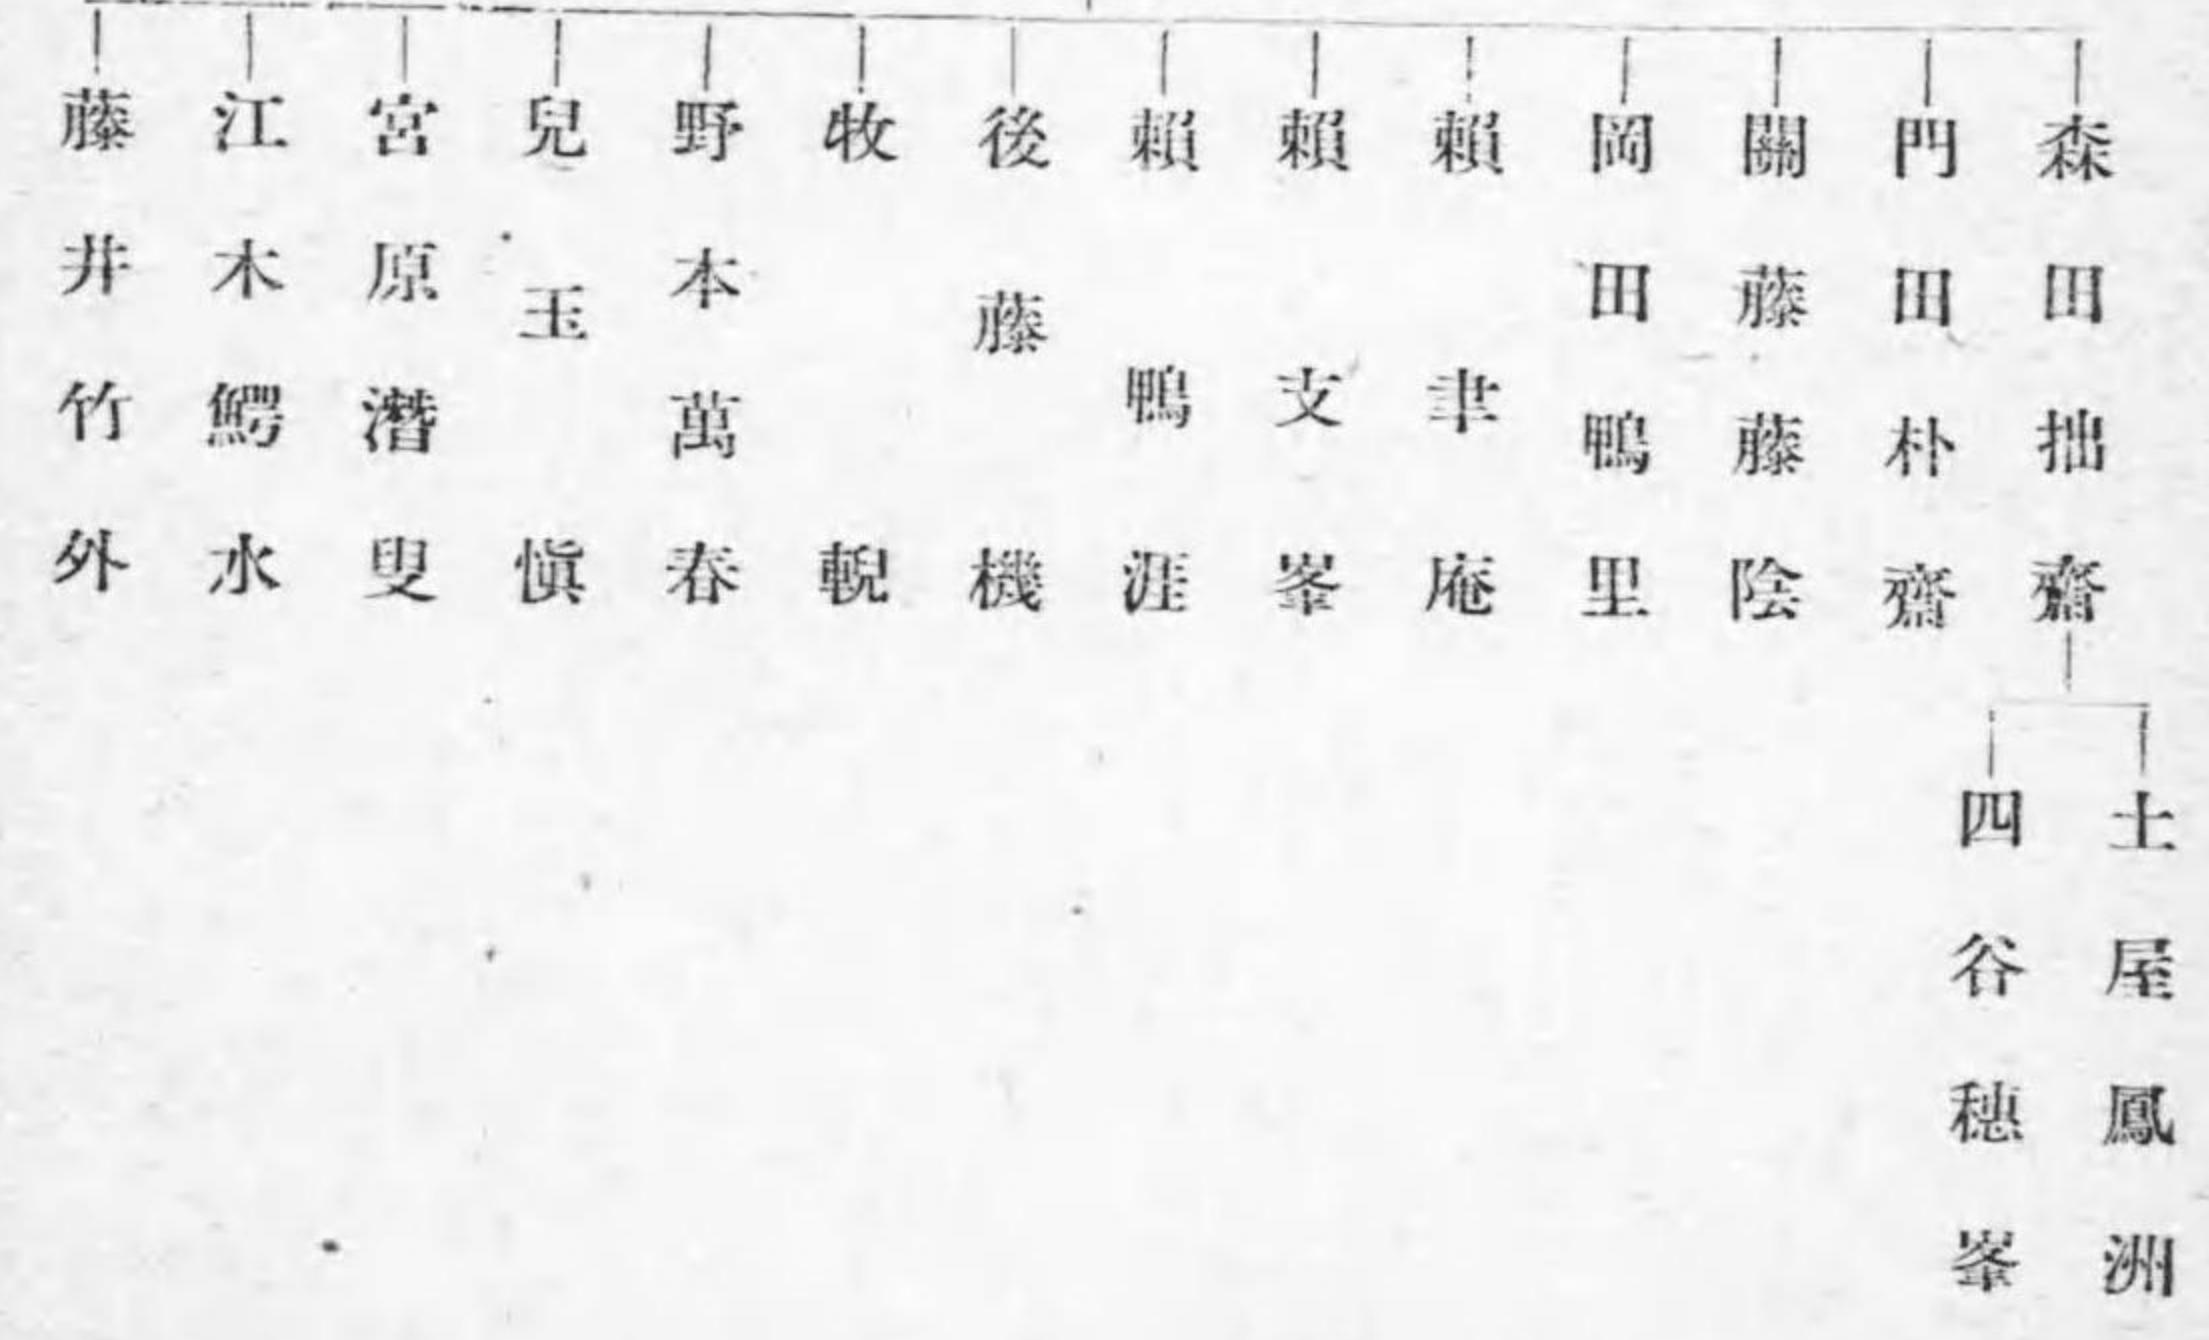 森田拙齋
土屋鳳洲
四谷穗峯
門田朴齋
關藤藤陰
岡田鴨里
賴聿庵
賴支峯
賴鴨涯
後藤機
牧輗
野本萬春
兒玉愼
宮原潛叟
江木鰐水
藤井竹外